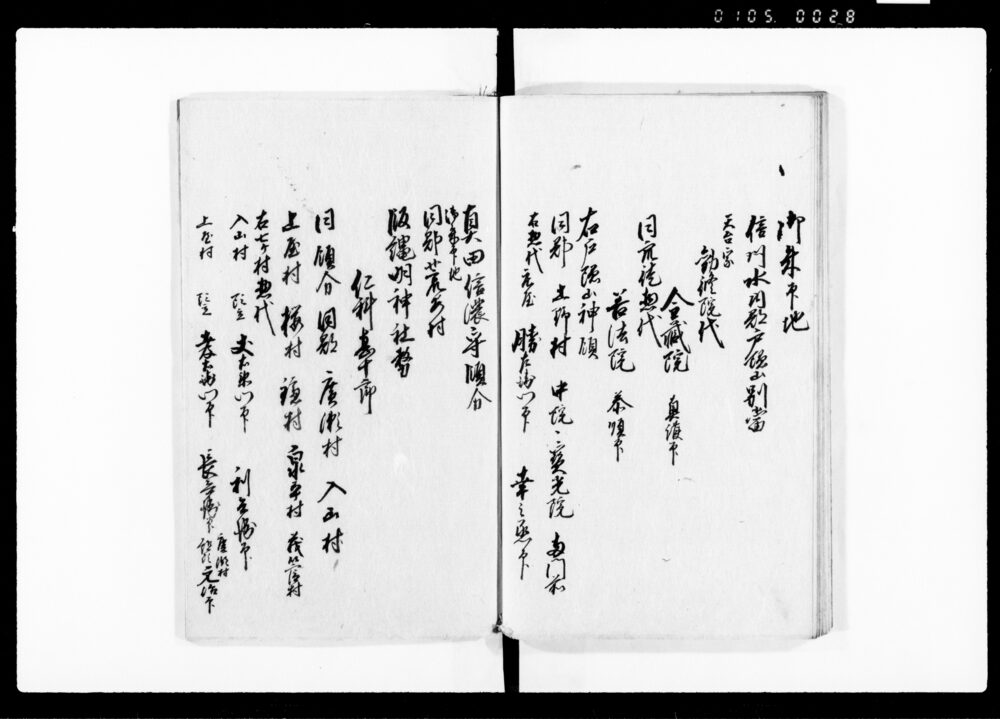 0105 0028
御朱印地
信州水内郡戸隠山別當
天台家
勧修院代
金蔵院 真詮印
同衆徒惣代
善法院 恭順印
右戸隠山神領
同郡 上野村 中院 宝光院 両門前
右惣代名主 勝左衛門印 幸之丞印
真田信濃守領分
御朱印地
同郡荒安村
飯縄明神社務
仁科甚十郎
同領分 同郡 廣瀬村 入山村
上屋村 桜村 鑪村 泉平村 茂菅村
右七ケ村惣代
入山村 丈右衛門印 利兵衛印
上屋村 孝左衛門印 長兵衛印 廣瀬村 元治印